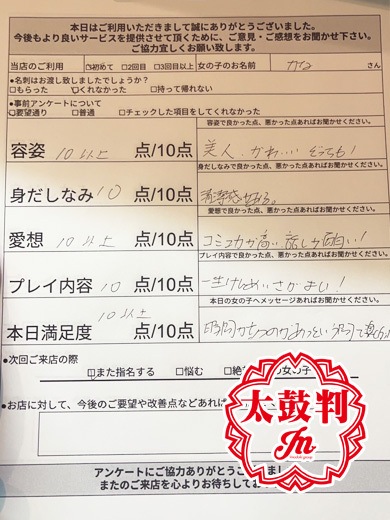 本日はご利用いただきまして誠にありがとうございました。
今後もより良いサービスを提供させて頂くために、ご意見・ご感想をお聞かせ下さい。
ご協力宜しくお願い致します。
当店のご利用 ☑初めて □2回目 □3回目以上 女の子のお名前 かな さん
●名刺はお渡し致しましたでしょうか?
□もらった ☑くれなかった □持って帰れない
●事前アンケートについて
☑要望通り □普通 □チェックした項目をしてくれなかった
容姿で良かった点、悪かった点あればお聞かせください。
容姿 10以上 点/10点 美人、かわいい どっちも!
身だしなみで良かった点、悪かった点あればお聞かせください。
身だしなみ 10 点/10点 清潔感がある。
愛想で良かった点、悪かった点あればお聞かせください。
愛想 10以上 点/10点 コミュ力が高い 話しが面白い!
プレイ内容で良かった点、悪かった点あればお聞かせください。
プレイ内容 10 点/10点 一生けんめいさがよい!
本日の女の子へメッセージあればお聞かせください。
本日満足度 10以上 点/10点 時間がたつのが
●次回ご来店の際
☑また指名する □悩む □絶 の女の子
●お店に対して、今後のご要望や改善点などあれば
太鼓判
Jn
アンケートにご協力ありがとうござ
またのご来店を心よりお待ちしてお